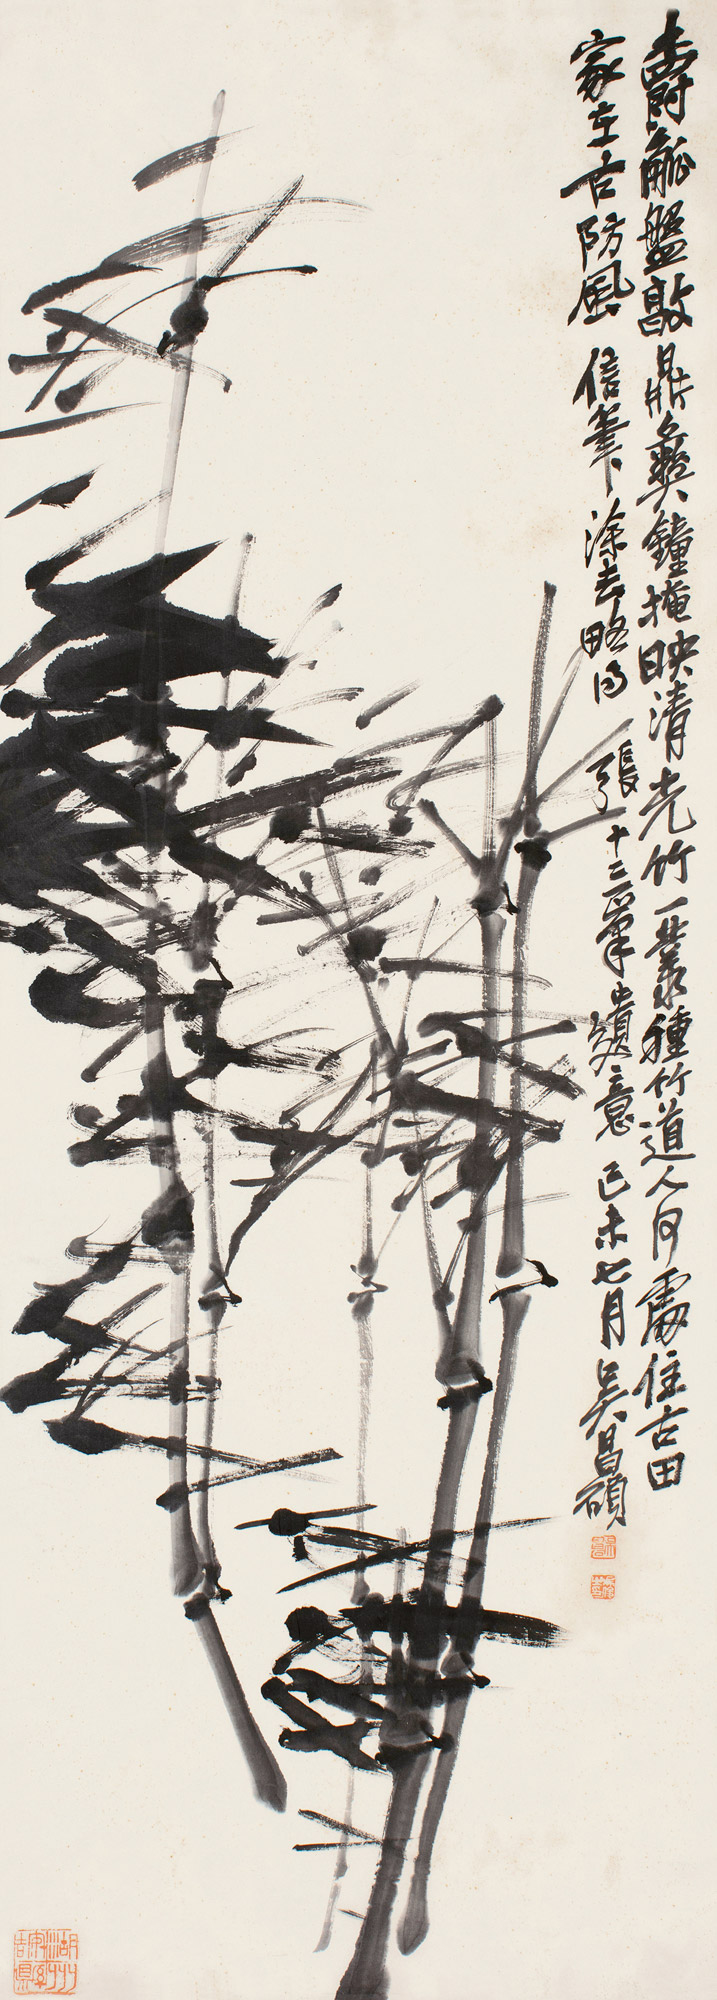 爵觚盤敦鼎彝鐘掩映清光竹一叢種竹道人何處住古田
家在古防風 信筆涂去略得張十三峯遺意 己未七月吳昌碩
湖州安吉縣